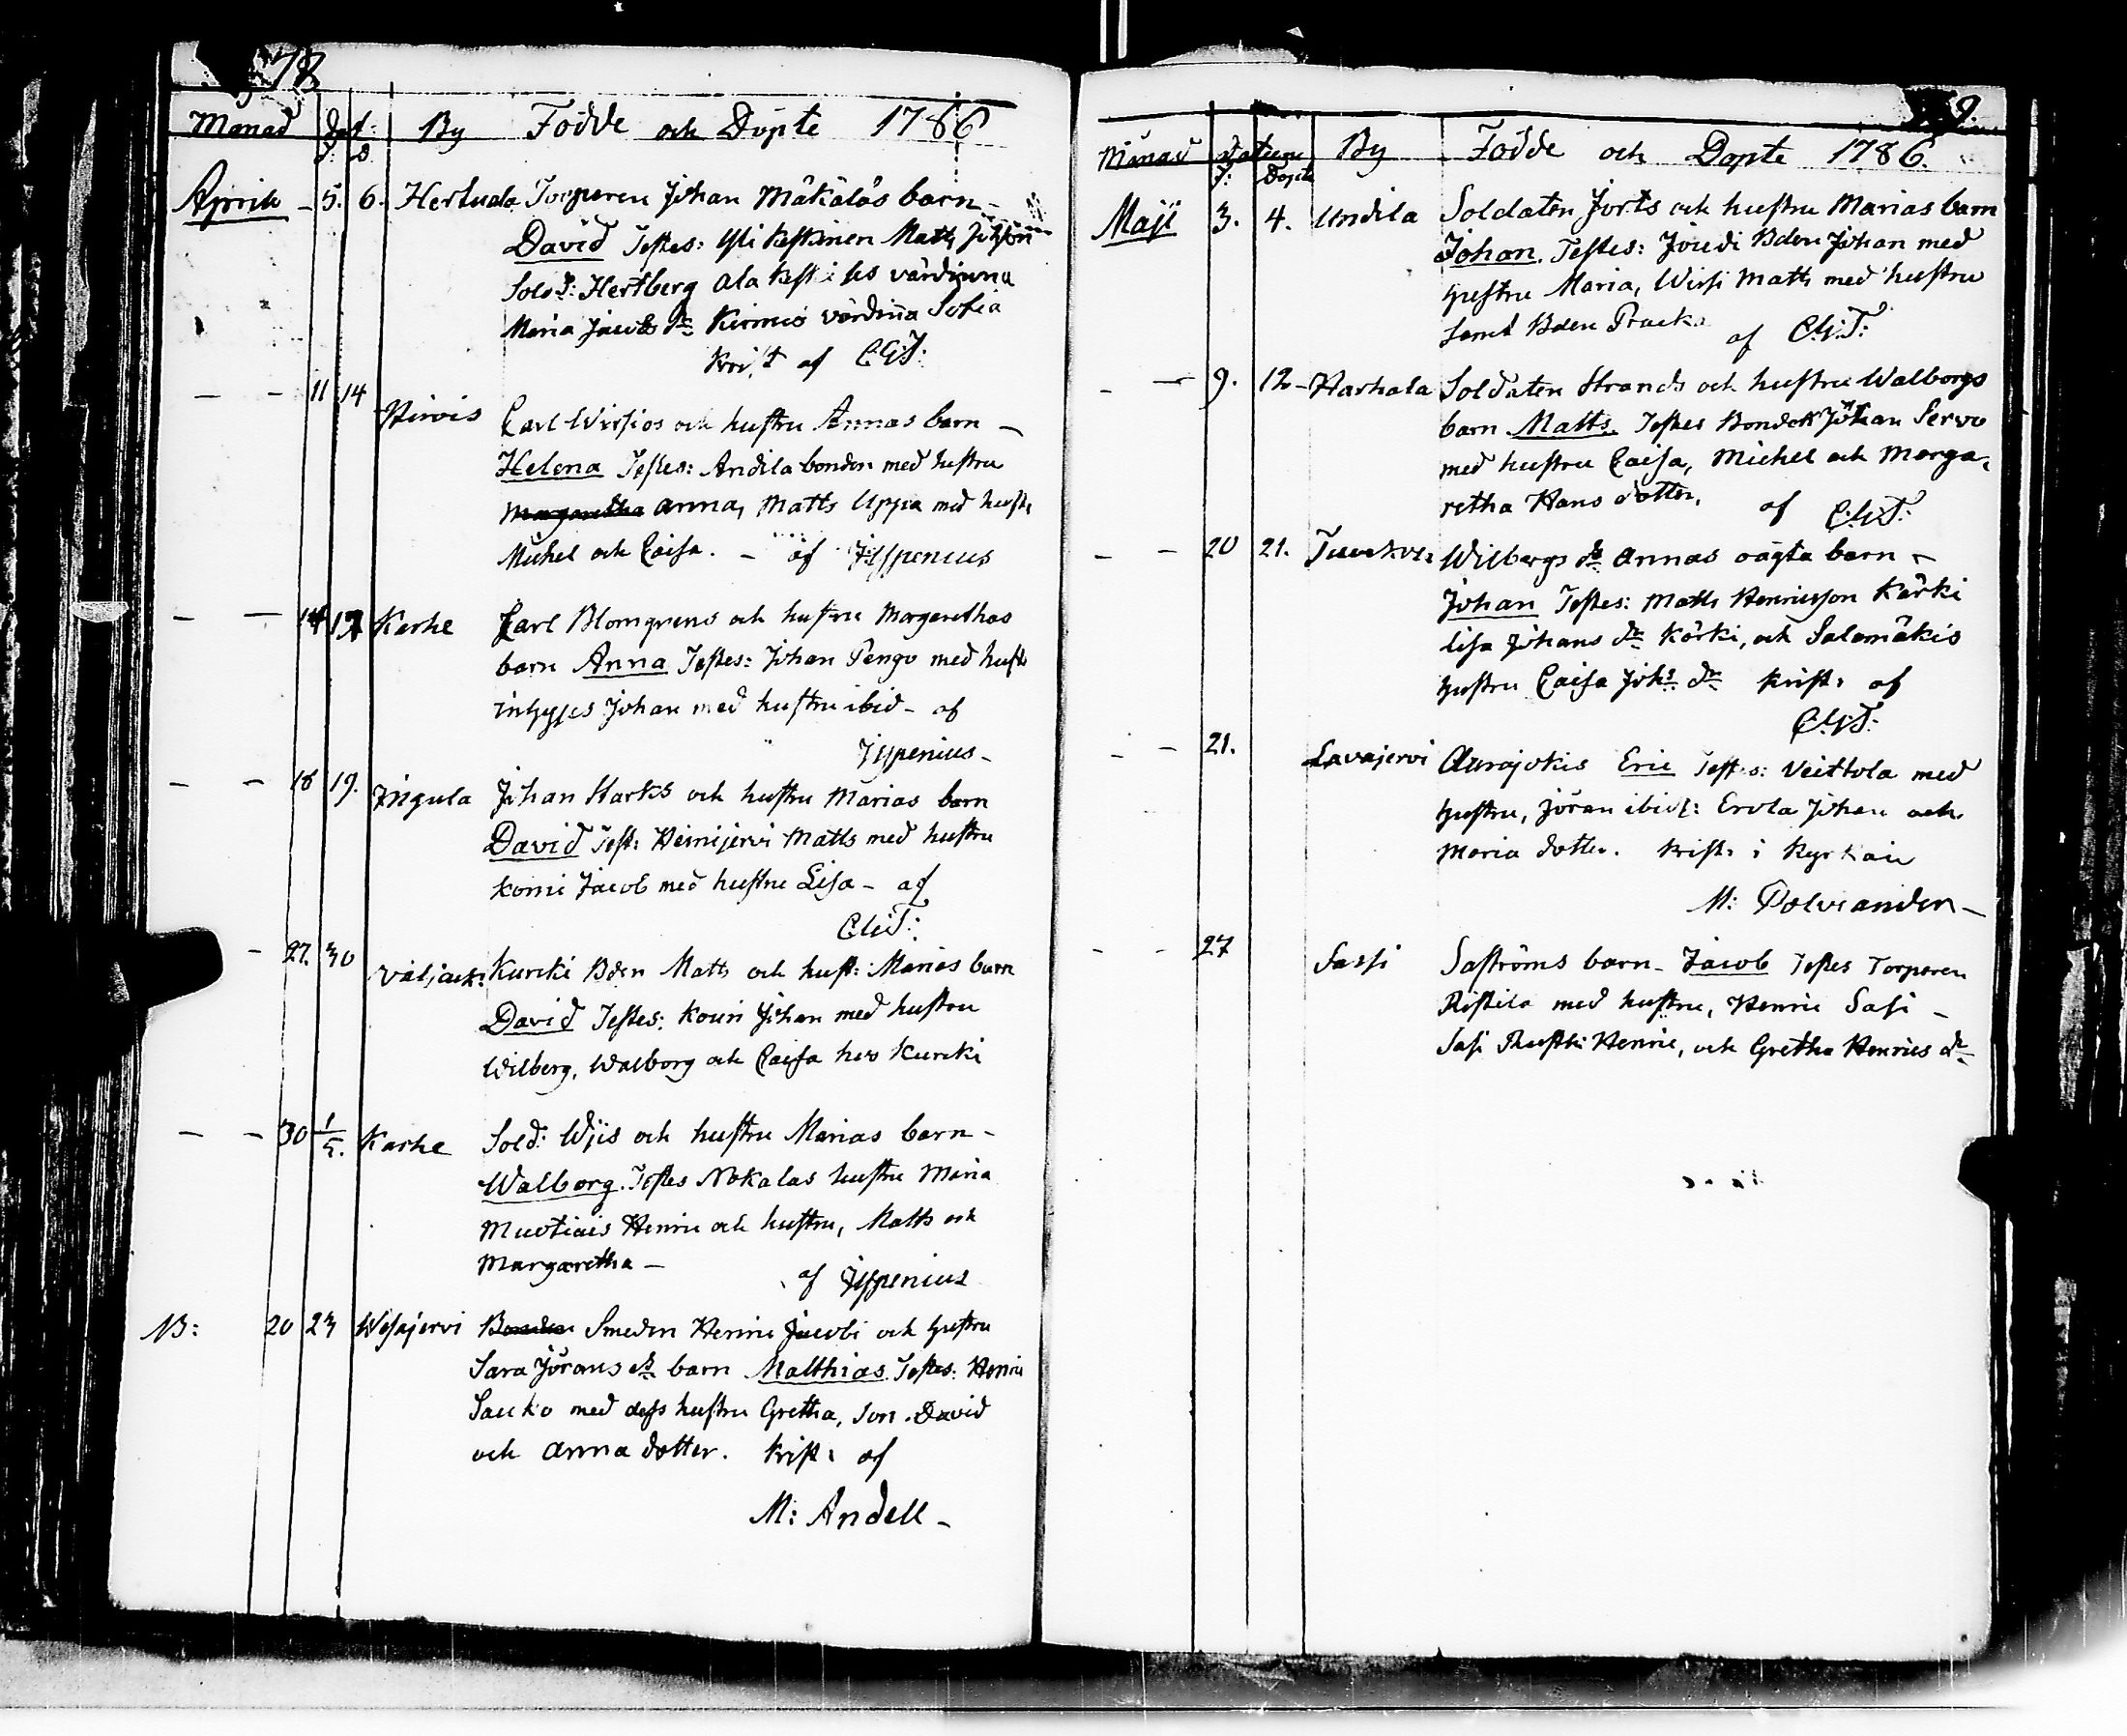 78
Månad dat: By Födde och Döpte 1786
f: d.
April - 5. 6. Hertuala Torparen Johan Mäkäläs barn -
David Testes: Yli Keskinen Matts Johsson
Sold: Hertberg Ala värdinna
Maria Jacobs dr Kurmis värdiña Sofia
Krist af C.G.T:
- - 11 14
Hirvis Carl Wirsios och hustru Annas barn -
Helena Testes: Andila bonden med hustru
Margaretha Anna, Matts Uppa med hust:
Michel och Caisa. - af Jispenius
- - 14 17 Karhe Carl Blomqvens och hustru Margarethas
barn Anna Testes: Johan Pengo med hust:
inhyses Johan med hustru ibid - af
Jispenius -
- - 18 19. Jngula Johan Starks och hustru Marias barn
David Test: Heinijervi Matts med hustru
Komi Jacob med hustru Lisa - af
C.G.T:
- 27. 30 Väljack: Kurcki Bden Matts och hust: Marias barn
David Testes: Kouri Johan med hustru
Wilberg, Walborg och Caisa hos Kurcki
- - 30 1/5. Karhe Sold: Wjis och hustru Marias barn -
Walborg. Testes Nokalas hustru Maria
Muotiais Henric och hustru, Matts och
Margaretha -
af Jispenius
NB: 20 23 Wesajervi Bonden Smeden Henric Jacobi och hustru
Sara Jörans dr barn Matthias. Testes: Henric
Sauko med dess hustru Gretha, Son David
och Anna dotter. Krist: af
M: Andell -
9.
Månad Datum By Födde och Döpte 1786.
f: Döpte
Maji 3. 4. Undila Soldaten Jorts och hustru Marias barn
Johan. Testes: Joudi Bden Johan med
hustru Maria, Wirsi Matts med hustru
samt Bden Prack
af C.G.T:
- - 9. 12 - Harhala Soldaten Strands och hustru Walborgs
barn Matts. Testes Bonden Johan Servo
med hustru Caisa, Michel och Marga-
retha Hans dotter. af C.G.T:
- - 20 21. Wilbergs dr Annas oägta barn -
Johan Testes: Matts Henricsson Kärki
Lisa Johans dr Kärki, och Salomäkis
hustru Caisa Johs dr Krist: af
C.G.T:
- - 21. Lavajervi Aurajokis Eric Testes: Veittola med
hustru, Jöran ibid: Erola Johan och
Maria dotter. Krist: i Kyrkan
M: Polviander -
- - 27 Sassi Saströms barn - Jacob Testes Torparen
Ristila med hustru, Henric Sasi -
Sasi Henric, och Gretha Henrics dr